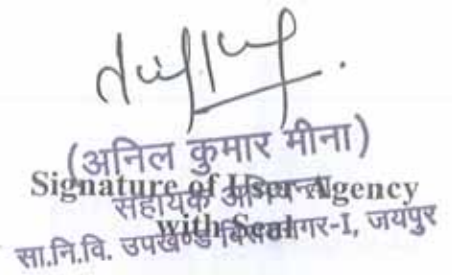 (अनिल कुमार मीना)
Signature of User Agency
सहायक अभियन्ता
with Seal
सा.नि.वि. उपखण्ड गर-I, जयपुर